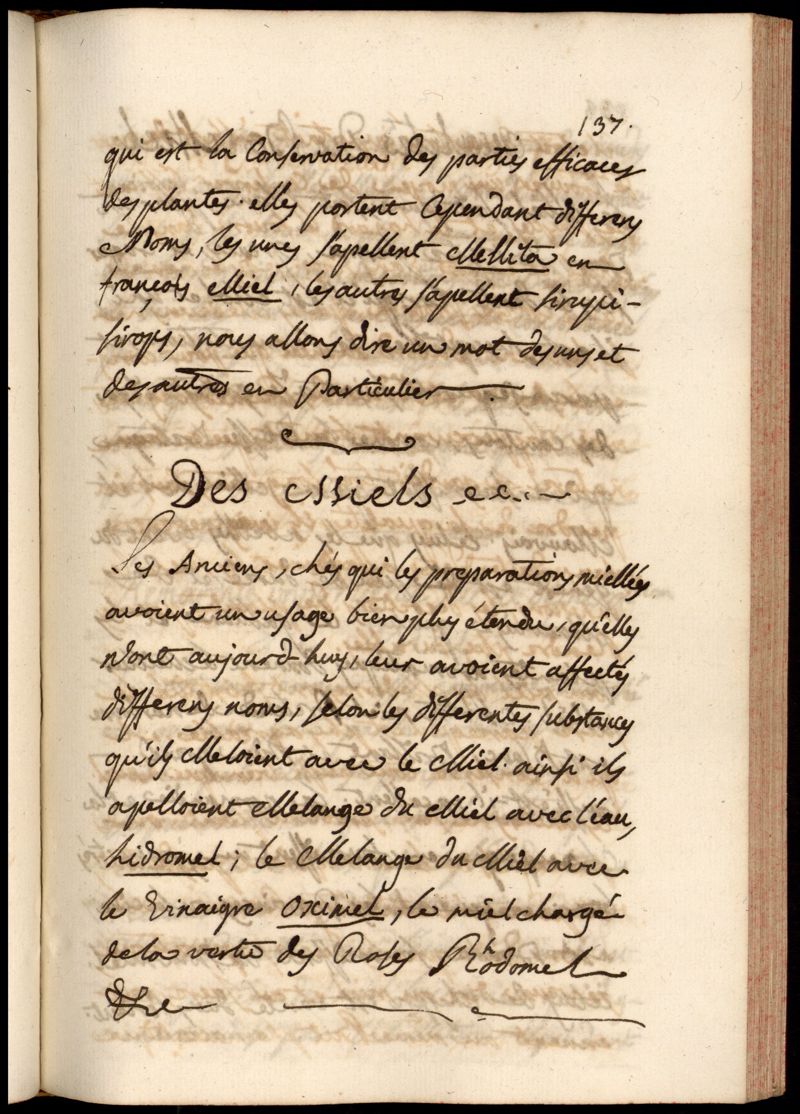 137.
qui est la Conservation des parties efficaces
des plantes. elles portent Cependant differens
Noms, les unes s'apellent Mellita en
françois Miel, les autres s'apellent sirupi-
sirops, nous allons dire un mot des uns et
des autres en Particulier.
Des Miels
Les Anciens, chés qui les preparations miellées
avoient un usage bien plus étendu, qu'elles
n'ont aujourd-huy, leur avoient affectés
differens noms, selon les differentes substances
qu'ils Meloient avec le Miel. ainsi ils
apelloient Melange du Miel avec l'éau,
hidromel; le Melange du Miel avec
le Vinaigre Oximel, le miel chargé
de la vertu des Roses Rhodomel
&c